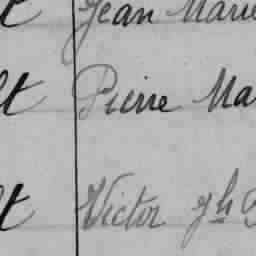 t Jean Marie
lt Pierre Ma
lt Victor Jh